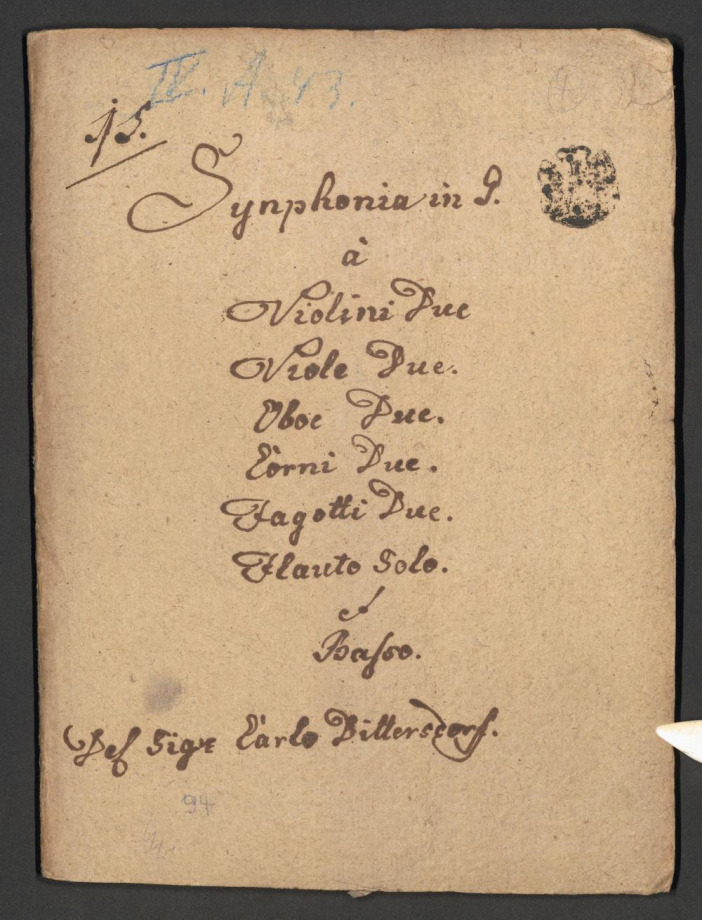 IV. A. 43.
15.
Synphonia in G.
à
Violini Due
Viole Due.
Oboe Due.
Corni Due.
Fagotti Due.
Flauto Solo.
e
Basso.
Del Sigr Carlo Dittersdorf.
94